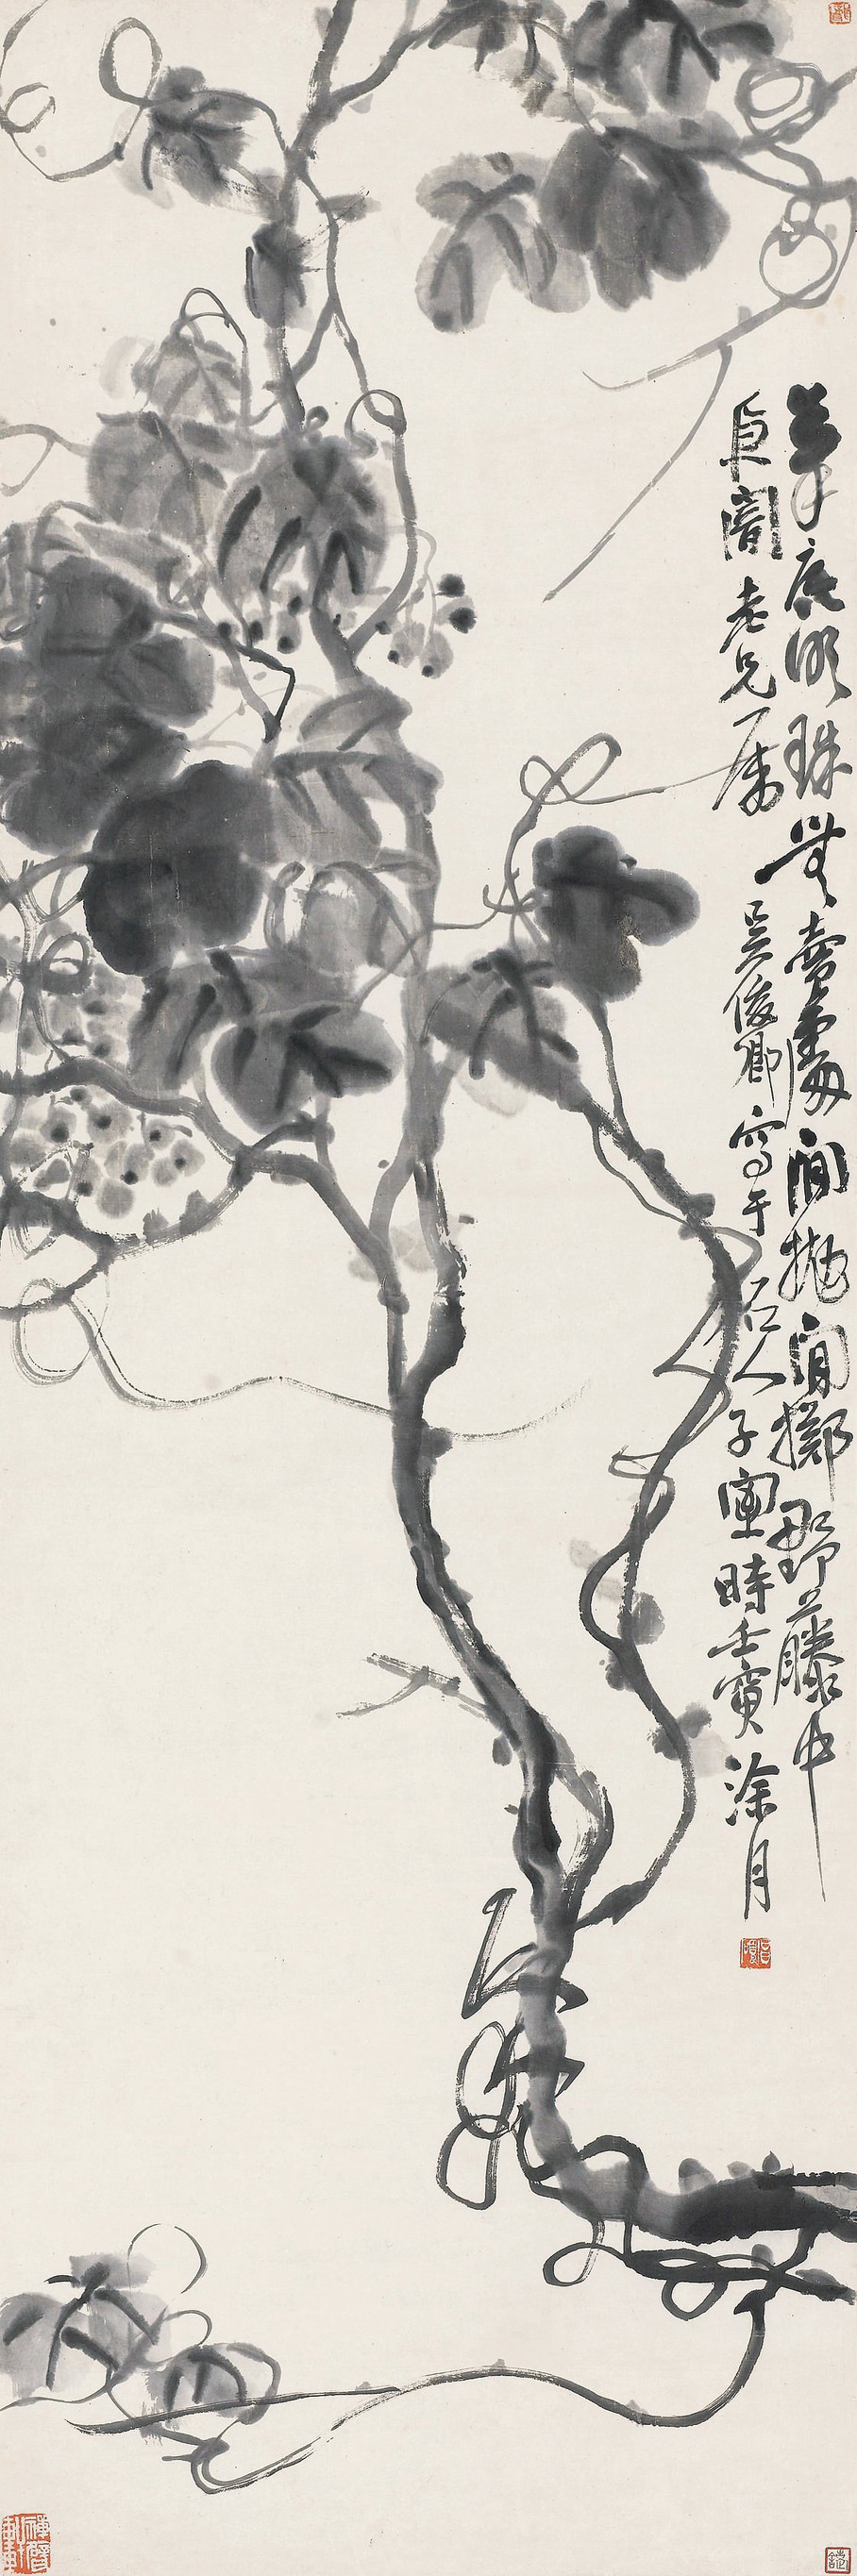 筆底明珠無賣處閒拋閒擲野藤中
老兄属
吳俊卿寫于
石人子室時壬寅涂月